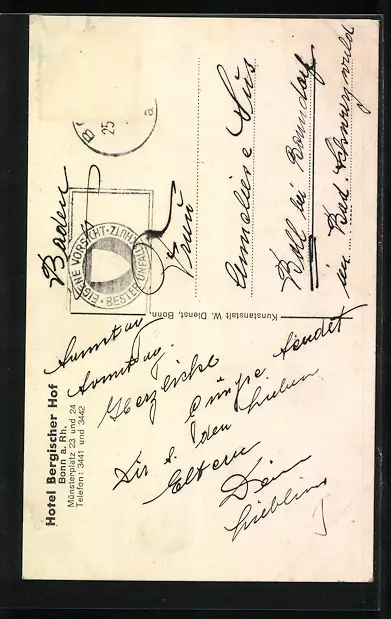 Hotel Bergischer Hof
Bonn a. Rh.
Münsterplatz 23 und 24
Telefon: 3441 und 3442
Sonntag
Herzliche
Grüße sendet
Dir u. den lieben
Eltern
Dein
Liebling
Kunstanstalt W. Dienst, Bonn.
B
25
a
EIGNE VORSICHT · BESTER UNFALLSCHUTZ
Baden
Frau
Anneliese
Boll bei Bonndorf
im Bad. Schwarzwald